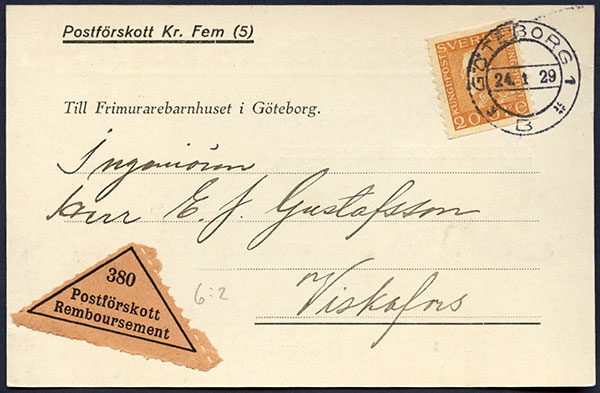 Postförskott Kr. Fem (5)
SVERIGE
20 öre
GÖTEBORG 1
24. 1 29
* B *
Till Frimurarebarnhuset i Göteborg.
Ingeniören
Herr E. J. Gustafsson
Viskafors
6:2
380
Postförskott
Remboursement